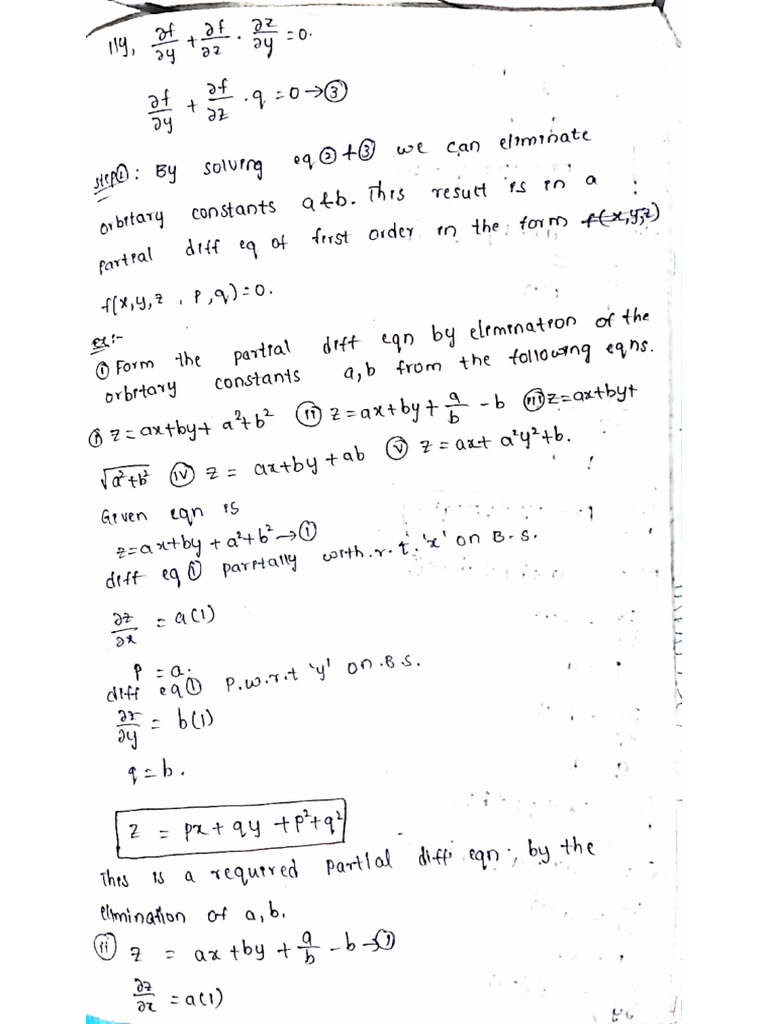 lly, ∂f/∂y + ∂f/∂z . ∂z/∂y = 0.
∂f/∂y + ∂f/∂z . q = 0 → ③
step①: By solving eq ② + ③ we can eliminate
orbitary constants a & b. This result is in a
partial diff eq of first order in the form f(x,y,z)
f(x,y,z , p,q)=0.
ex:-
① Form the partial diff eqn by elemination of the
orbitary constants a,b from the following eqns.
ⓘ z=ax+by+ a²+b² ⓘⓘ z=ax+by+ a/b - b ⓘⓘⓘ z=ax+by+
√a²+b² ⓘⓥ z = ax+by+ab ⓥ z = ax+ a²y²+b.
Given eqn is
z=ax+by+a²+b² → ①
diff eq ① partially with.r.t. 'x' on B.S.
∂z/∂x = a(1)
p = a.
diff eq① p.w.r.t 'y' on.B.S.
∂z/∂y = b(1)
q = b.
z = px + qy + p²+q²
This is a required partial diff eqn, by the
elimination of a,b.
ⓘⓘ z = ax +by + a/b - b → ①
∂z/∂x = a(1)